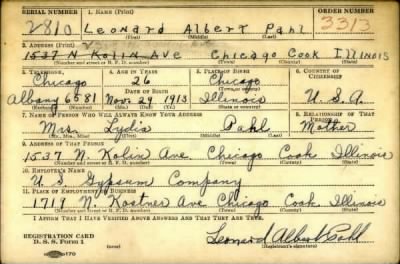 SERIAL NUMBER 1. NAME (Print) ORDER NUMBER
2810 Leonard Albert Pahl 3313
(First) (Middle) (Last)
2. ADDRESS (Print)
1537 N Kolin Ave Chicago Cook Illinois
(Number and street or R. F. D. number) (Town) (County) (State)
3. TELEPHONE 4. AGE IN YEARS 5. PLACE OF BIRTH 6. COUNTRY OF CITIZENSHIP
Chicago 26 Chicago
DATE OF BIRTH (Town or county)
Albany 6581 Nov. 29 1913 Illinois U.S.A.
(Exchange) (No.) (Mo.) (Day) (Yr.) (State or country)
7. NAME OF PERSON WHO WILL ALWAYS KNOW YOUR ADDRESS 8. RELATIONSHIP OF THAT PERSON
Mrs. Lydia Pahl Mother
(Mr., Mrs., Miss) (First) (Middle) (Last)
9. ADDRESS OF THAT PERSON
1537 N Kolin Ave Chicago Cook Illinois
(Number and street or R. F. D. number) (Town) (County) (State)
10. EMPLOYER'S NAME
U. S. Gypsum Company
11. PLACE OF EMPLOYMENT OR BUSINESS
1719 N. Kostner Ave Chicago Cook Illinois
(Number and street or R. F. D. number) (Town) (County) (State)
I AFFIRM THAT I HAVE VERIFIED ABOVE ANSWERS AND THAT THEY ARE TRUE.
REGISTRATION CARD
D. S. S. Form 1
Leonard Albert Pahl
(Registrant's signature)